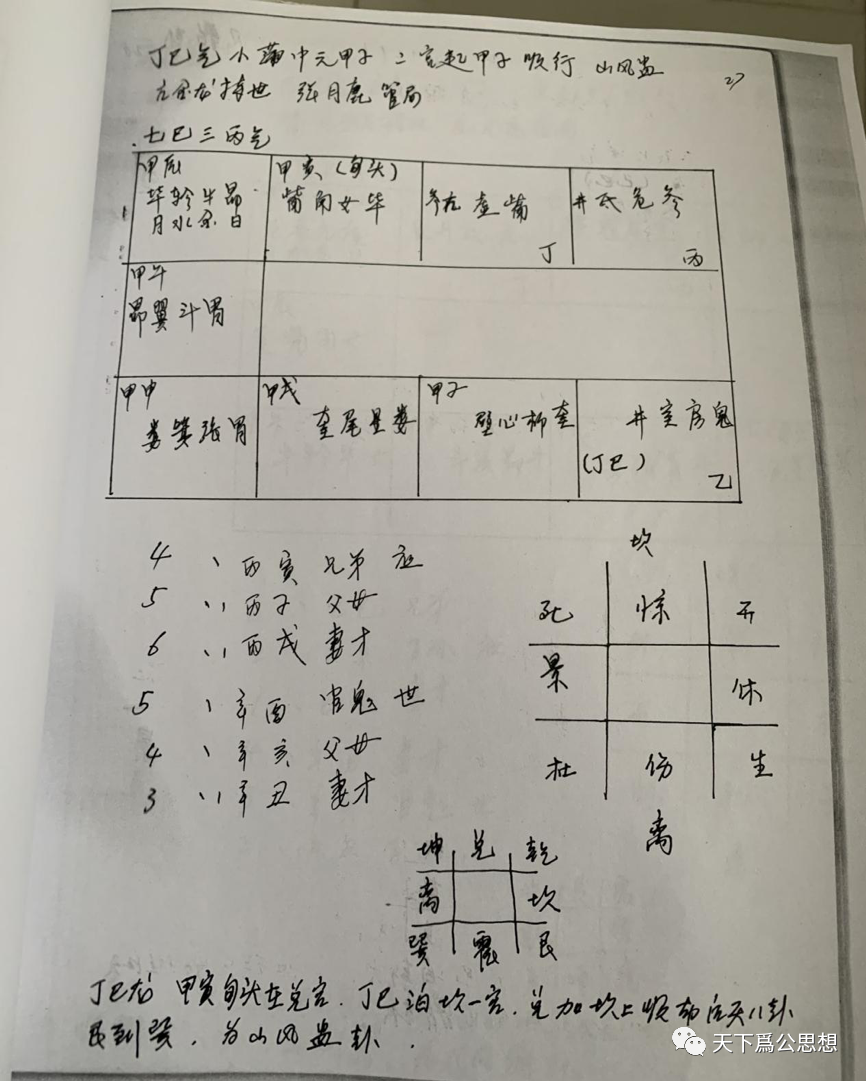 丁巳气 小满中元甲子 二宫起甲子 顺行 山风蛊
27
亢金龙持世 张月鹿管局
七巳三丙气
甲辰
毕轸牛昴
月水金日
甲寅(旬头)
觜角女毕
参亢虚觜
丁
井氐危参
丙
甲午
昴翼斗胃
甲申
娄箕张胃
甲戌
奎尾星娄
甲子
壁心柳奎
井室房鬼
(丁巳)
乙
4 、丙寅 兄弟 应
5 、、丙子 父母
6 、、丙戌 妻才
5 、辛酉 官鬼 世
4 、辛亥 父母
3 、、辛丑 妻才
坎
死 惊 开
景 休
杜 伤 生
离
坤 兑 乾
离 坎
巽 震 艮
丁巳龙 甲寅旬头在兑宫. 丁巳泊坎一宫. 兑加坎上顺布后天八卦
艮到巽. 为山风蛊卦.
天下爲公思想